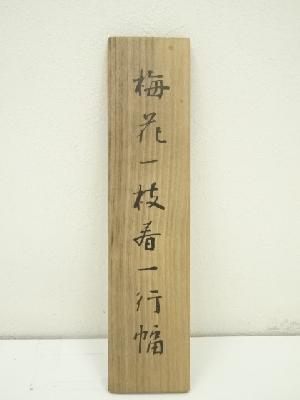 梅花一枝春一行幅